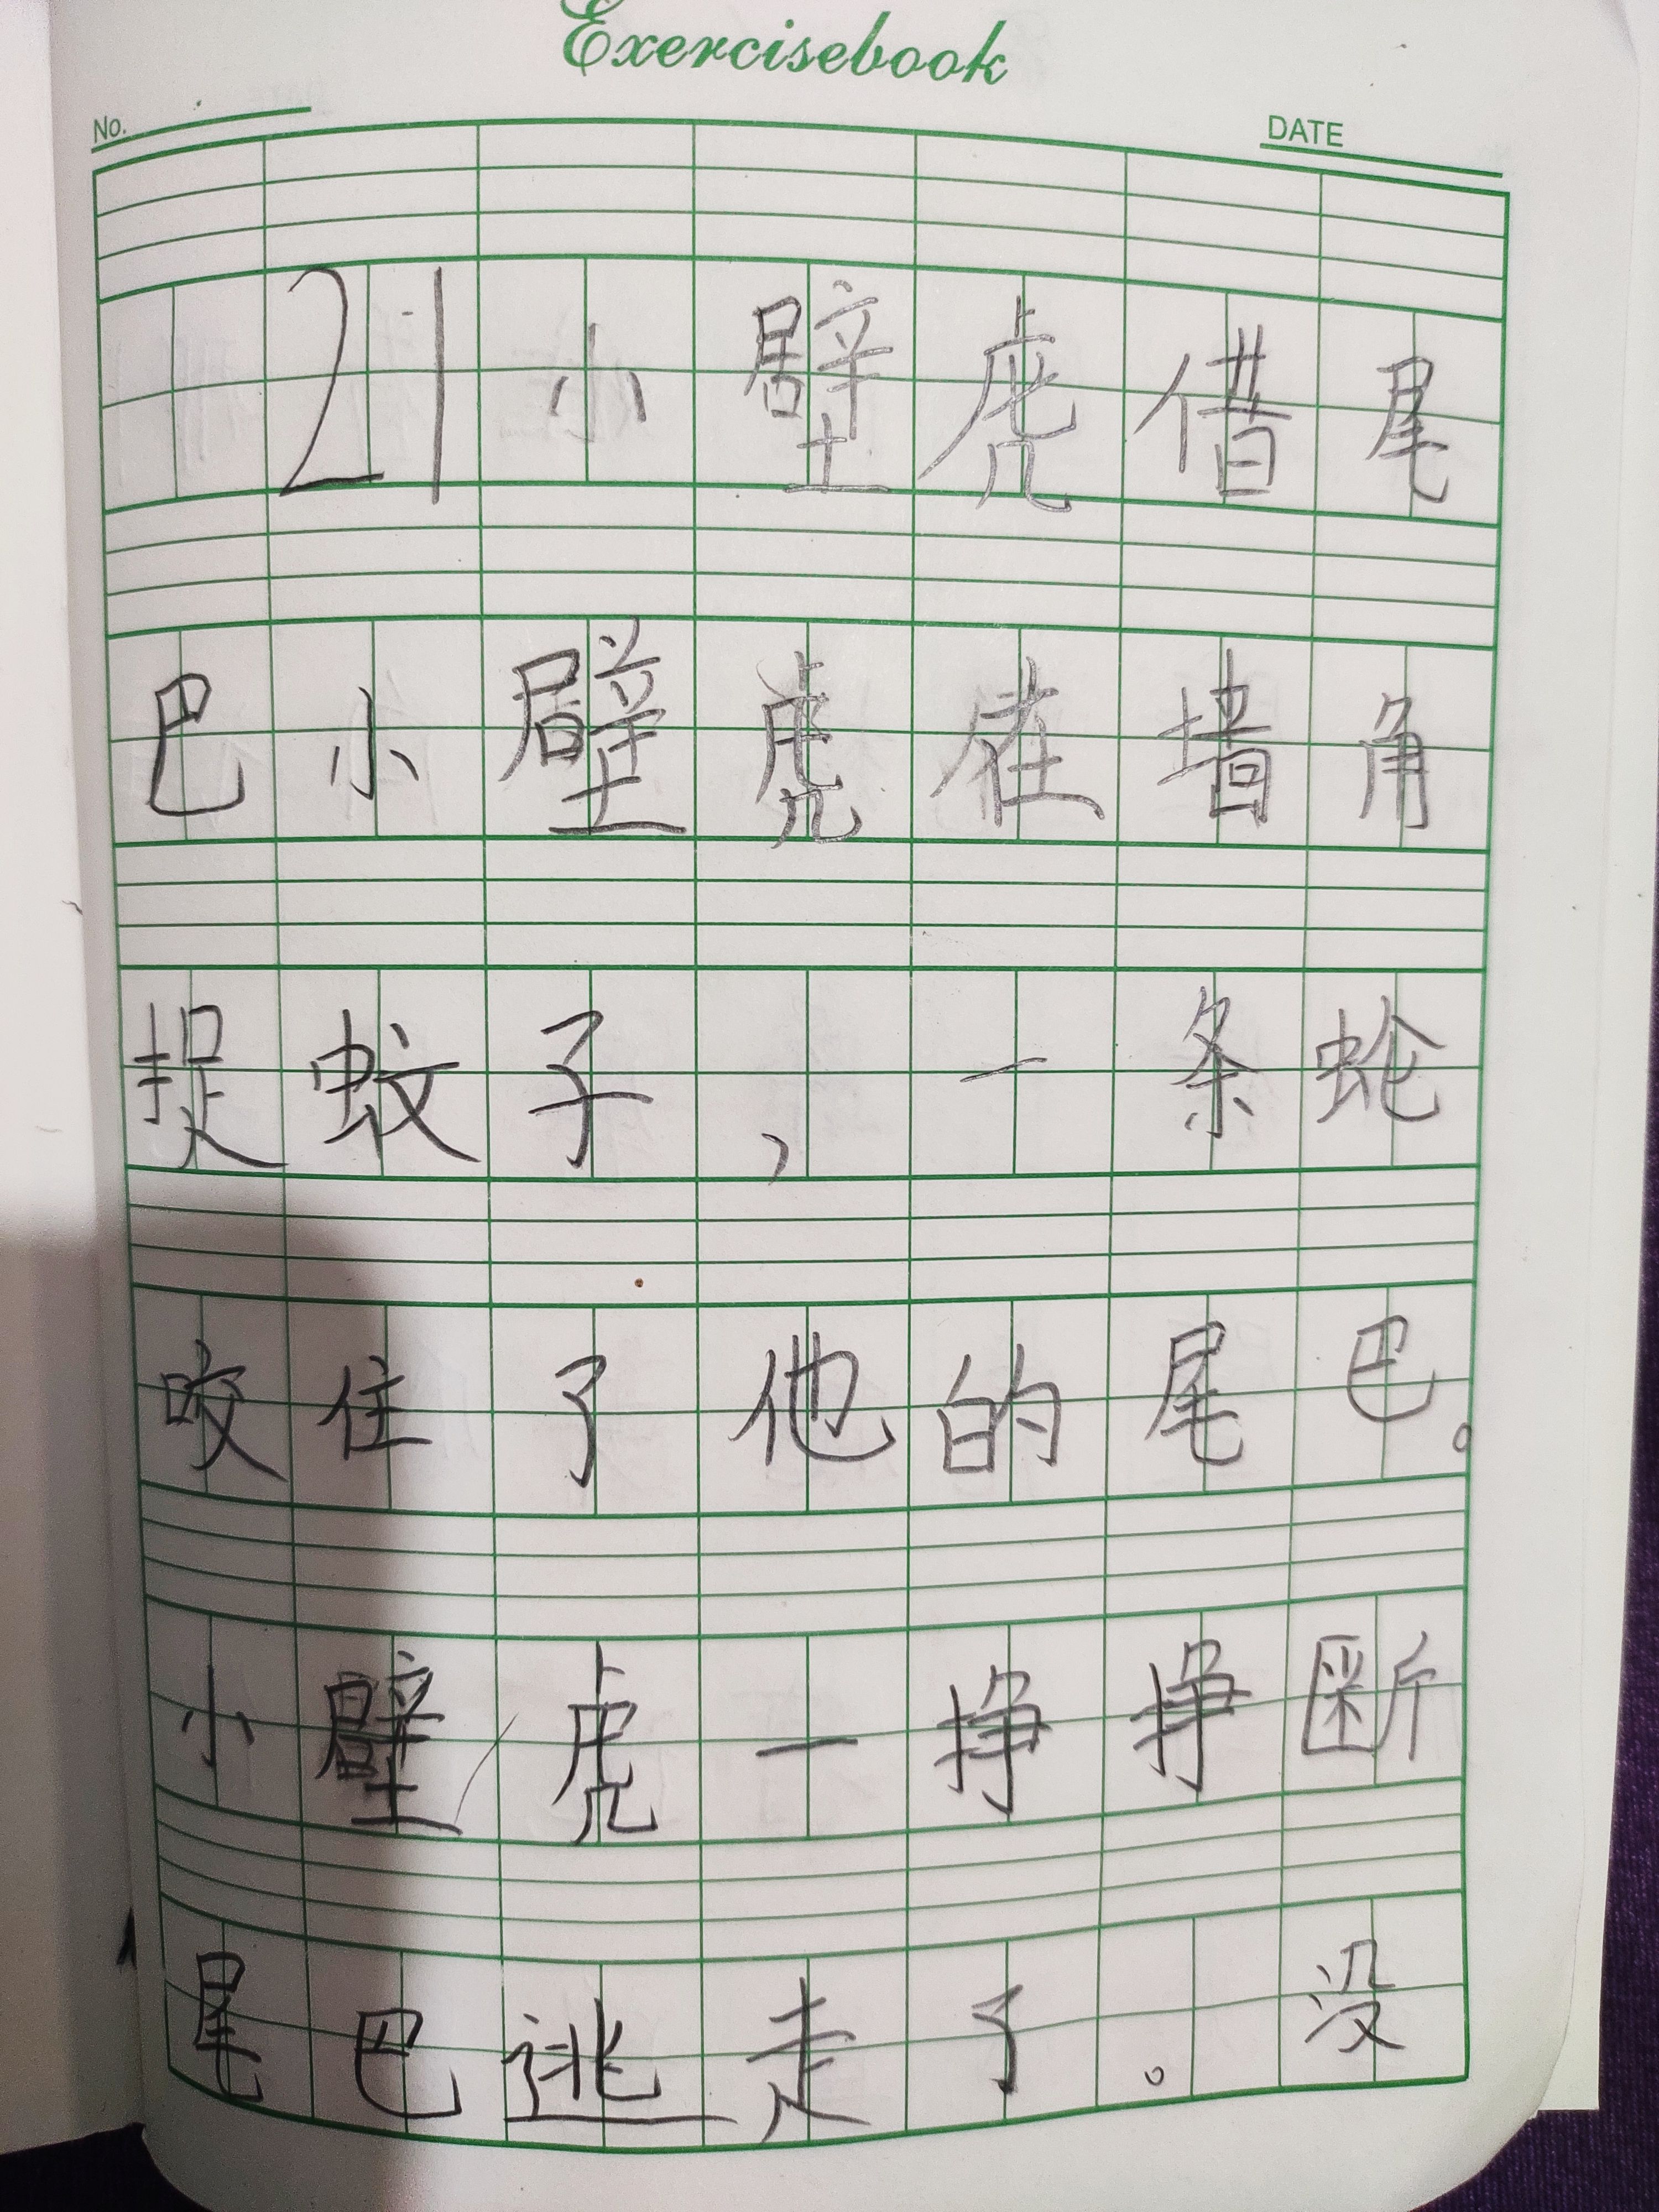 Exercisebook
No. DATE
21小壁虎借尾
巴小壁虎在墙角
捉蚊子，一条蛇
咬住了他的尾巴。
小壁虎一挣挣断
尾巴逃走了。没